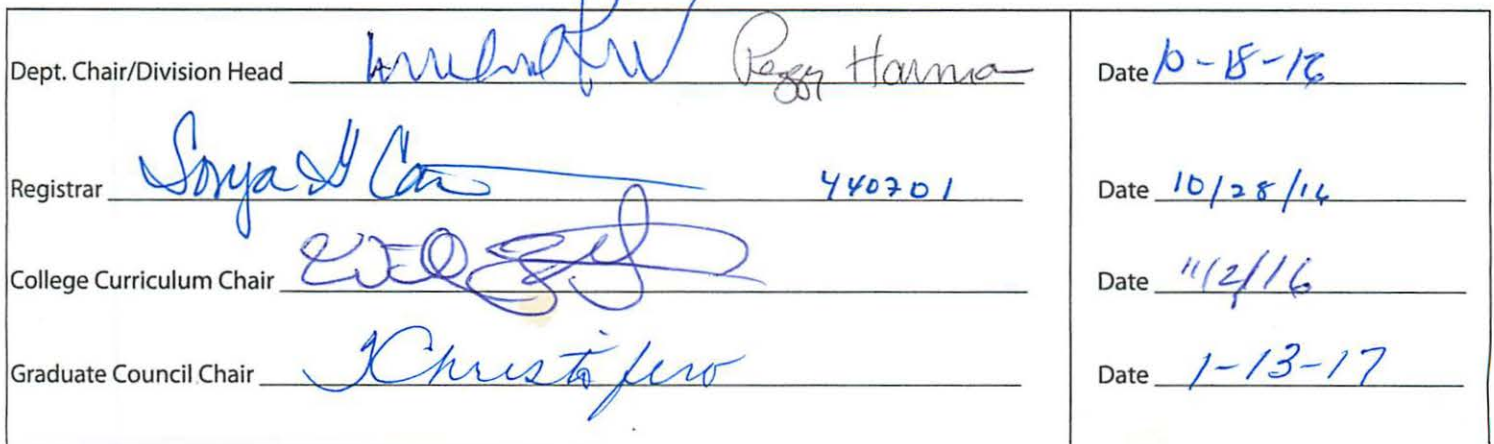 Dept. Chair/Division Head Peggy Harman Date 10-18-16
Registrar Sonya G Date 440701 10/28/16
College Curriculum Chair Date 11/2/16
Graduate Council Chair TChristofero Date 1-13-17